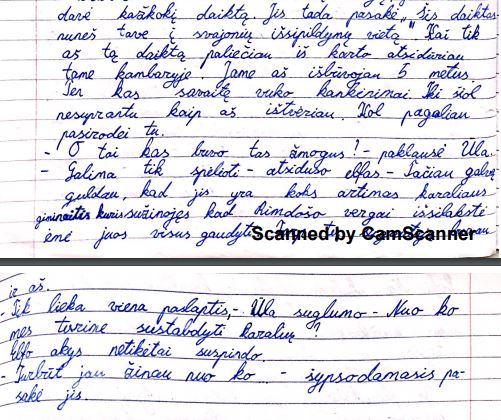 davė kažkokį daiktą. Jis tada pasakė „Šis daiktas
nuneš tave į svajonių išsipildymų vietą". Kai tik
aš tą daiktą paliečiau iš karto atsidūriau
tame kambaryje. Jame aš išbuvojau 5 metus.
Ten kas savaitę vyko kankinimai. Iki šiol
nesuprantu kaip aš ištvėriau. Kol pagaliau
pasirodei tu.
- O tai kas buvo tas žmogus? - paklausė Ula.
- Galima tik spėlioti - atsiduso elfas - Tačiau galvą
guldau, kad jis yra koks artimas karaliaus
giminaitis kuris sužinojęs kad Rimdošo vergai išsilakstė
ėmė juos visus gaudyti.
Scanned by CamScanner
ir aš.
- Tik lieka viena paslaptis, - Ula suglumo - Nuo ko
mes turime sustabdyti karalių?
Elfo akys netikėtai suspindo.
- Turbūt jau žinau nuo ko - šypsodamasis pa-
sakė jis.